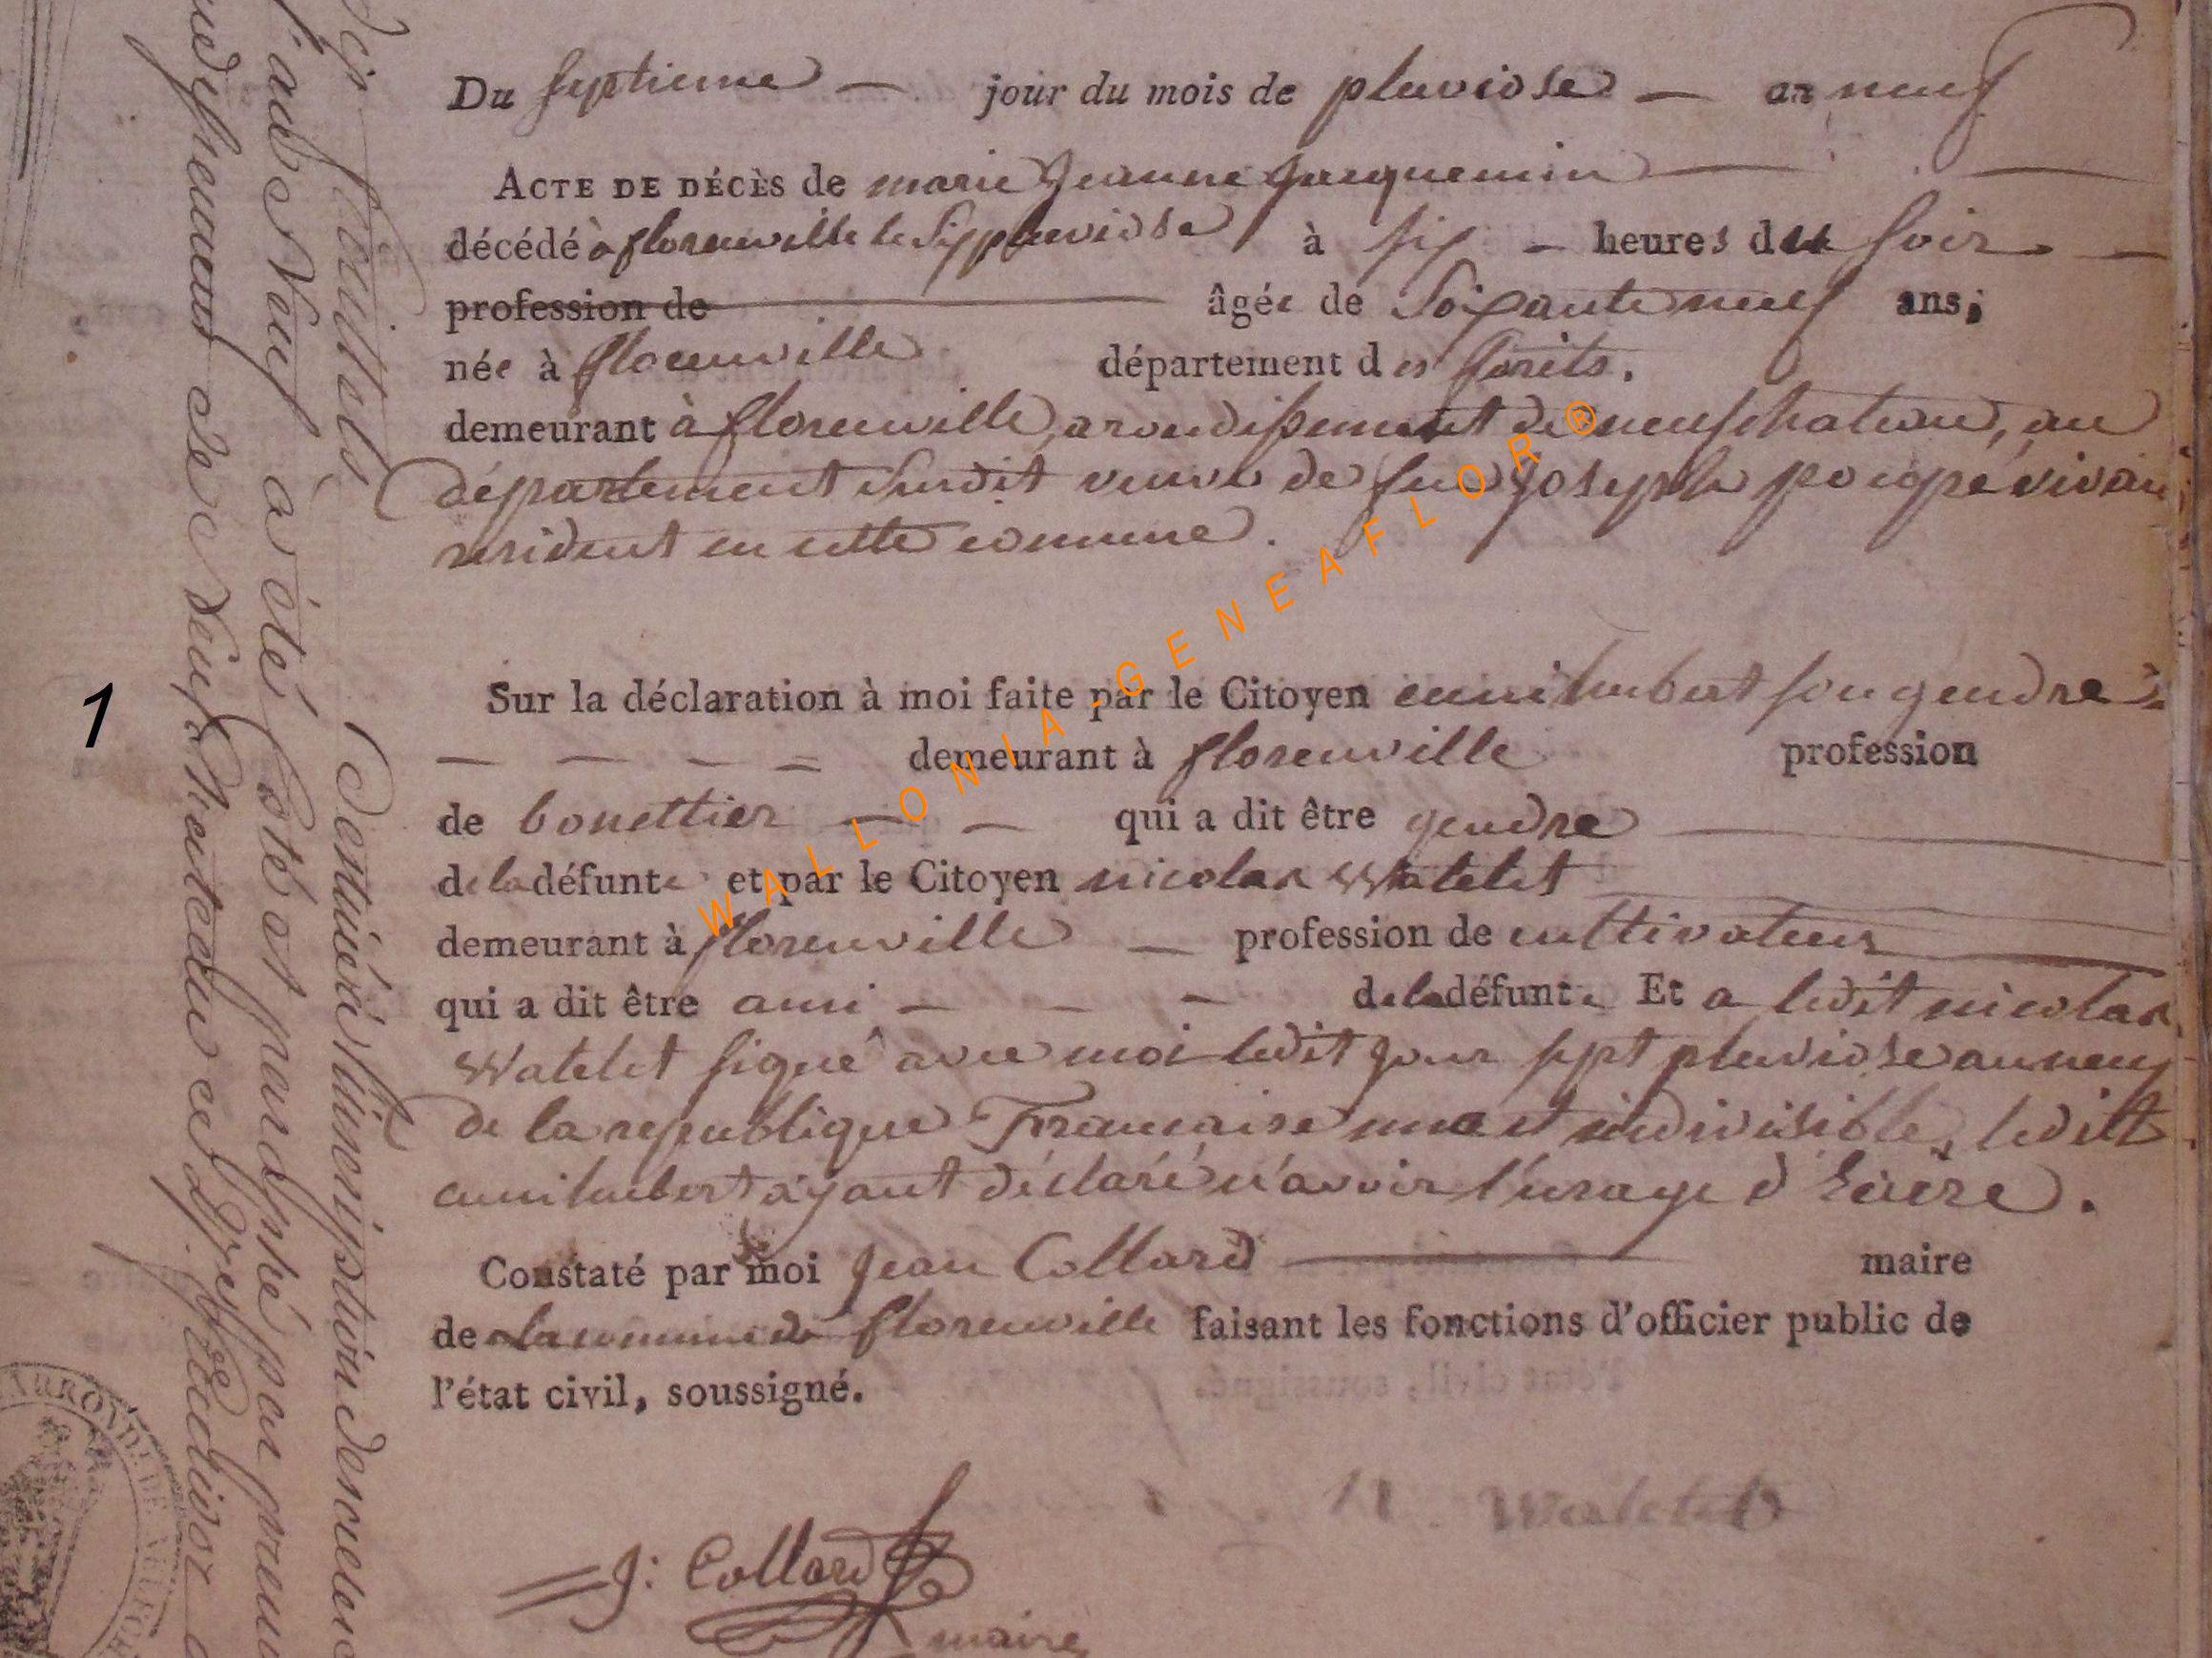 Du septieme — jour du mois de pluviose — an neuf
ACTE DE DÉCÈS de marie Jeanne Jacquemin
décédé à florenville le six pluviose à six — heures du soir
profession de âgée de soixante neuf ans,
née à florenville département des forêts.
demeurant à florenville, arondissement de neufchateau, au
département susdit veuve de feu Joseph poupé vivan
resident en cette comune.
Sur la déclaration à moi faite par le Citoyen humbert son gendre
demeurant à florenville profession
de bonettier — — qui a dit être gendre
de la défunte et par le Citoyen nicolas Watelet
demeurant à florenville — profession de cultivateur
qui a dit être ami — — — de la défunte Et a ledit nicolas
Watelet signé avec moi ledit jour sept pluviose an neuf
de la republique Francaise une et indivisible, ledit
humbert ayant déclaré n'avoir l'usage d'Ecrire.
Constaté par moi Jean Collard maire
de la commune de florenville faisant les fonctions d'officier public de
l'état civil, soussigné.
J: Collard
maire
N. Watelet
1
WALLONIA-GENEAFLOR®
feuillets destiné à l'inscription des
l'an Neuf a été coté et par
de Neufchateau ce
ARROND. DE NEUFCH